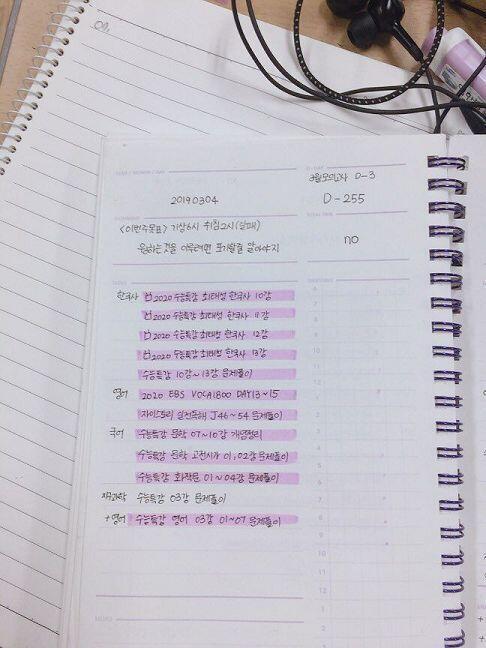 3월모의고사 D-3
20190304
D-255
<이번주목표> 기상6시 취침2시(실패)
원하는것을 이루려면 포기할줄 알아야지
no
한국사 2020 수능특강 최태성 한국사 10강
2020 수능특강 최태성 한국사 11강
2020 수능특강 최태성 한국사 12강
2020 수능특강 최태성 한국사 13강
수능특강 10강~13강 문제풀이
영어 2020 EBS VOCA1800 DAY13~15
자이스토리 실전독해 J46~54 문제풀이
국어 수능특강 문학 07~10강 개념정리
수능특강 문학 고전시가 01,02강 문제풀이
수능특강 화작문 01~04강 문제풀이
지구과학 수능특강 03강 문제풀이
+영어 수능특강 영어 03강 01~07 문제풀이